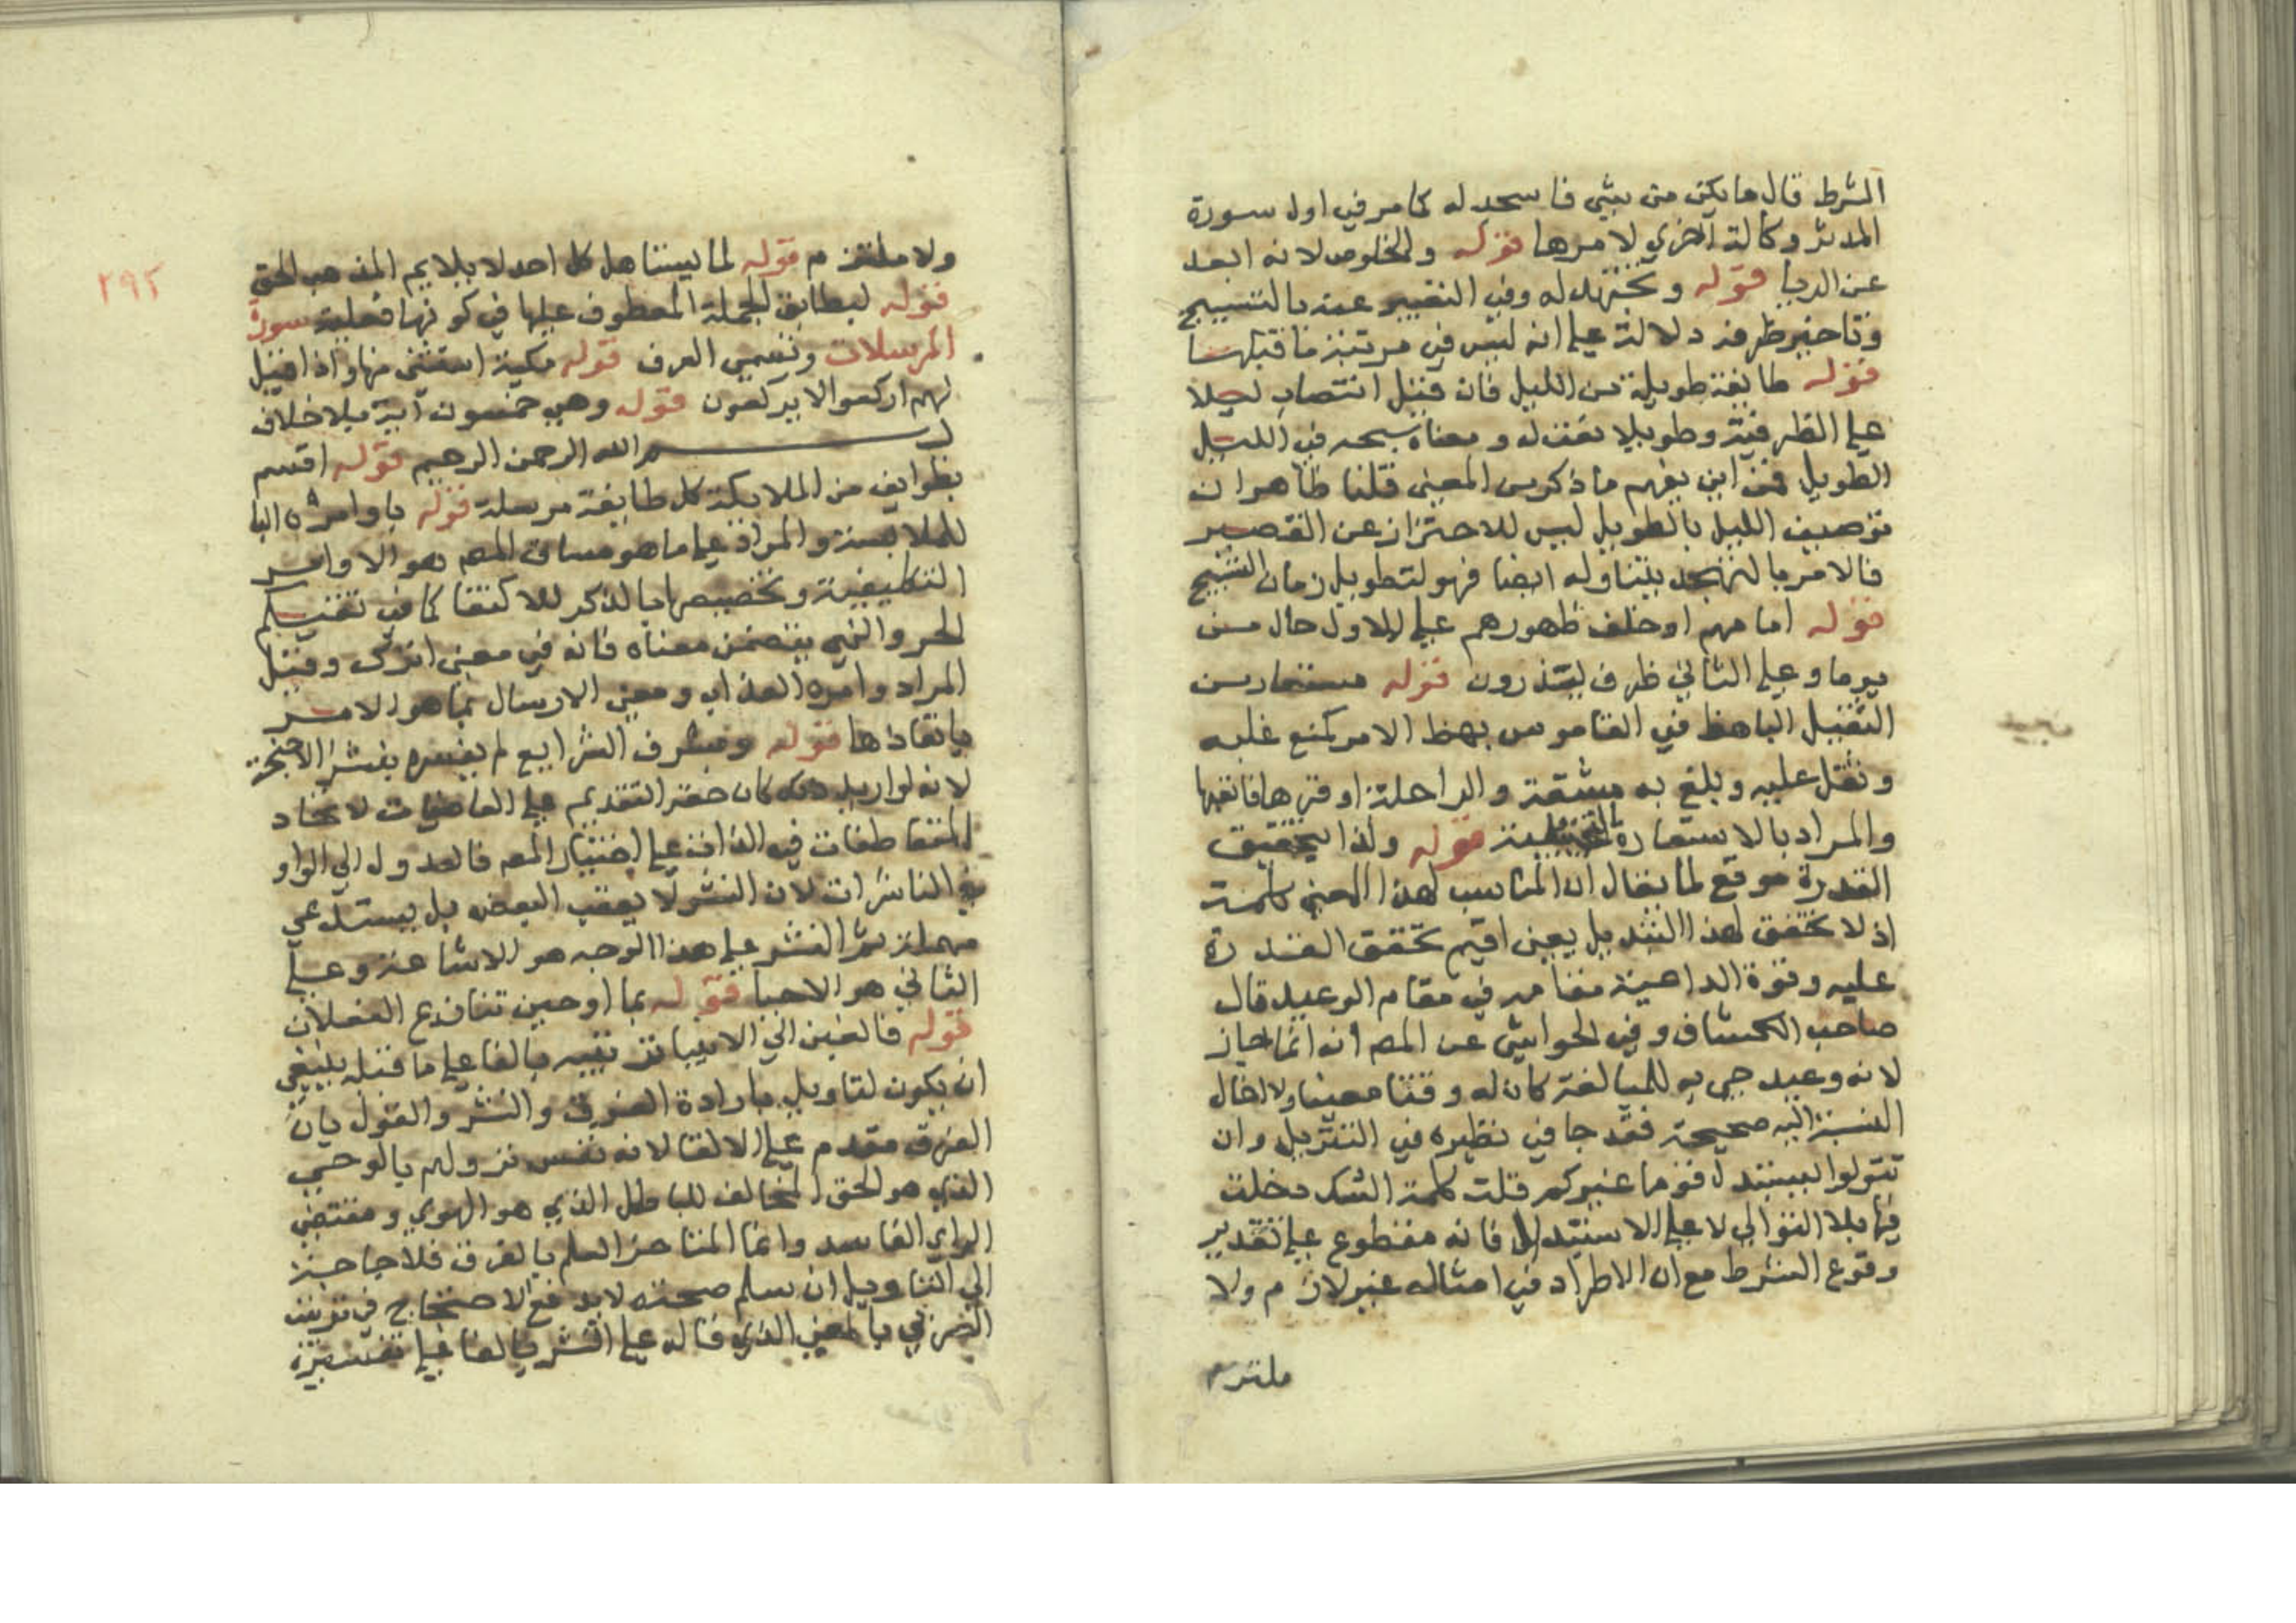 الشرط قال ما يكن من شي فاسجد له كما مر في اول سورة
المدثر وكالة اخري لامرها قوله والخلوص لانه ابعد
عن الريا قوله وتهجد له وفي التعبير عنه بالتسبيح
وتاخير ظرفه دلالة علي انه ليس في مرتبة ما قبلها
قوله طايفة طويلة من الليل فان قيل انتصاب ليلا
علي الظرفية وطويلا نعت له ومعناه سبحه في الليل
الطويل فمن اين يفهم ما ذكر من المعني قلنا ظاهر ان
توصيف الليل بالطويل ليس للاحتراز عن القصير
فالامر بالتهجد يتناوله ايضا فهو لتطويل زمان التسبيح
قوله امامهم او خلف ظهورهم علي الاول حال من
يوما وعلي الثاني ظرف ليذرون قوله مستعار من
الثقيل الباهظ في القاموس بهظ الامر كمنع غلبه
وثقل عليه وبلغ به مشقة والراحلة اوقرها فاتعبها
والمراد بالاستعارة التخييلية قوله ولذا لتحقيق
القدرة موقع لما يقال ان المناسب لهذا المعني كلمة
اذ لا تحقق لهذا التبديل يعني اقيم تحقق القدرة
عليه وقوة الداهية مقامه في مقام الوعيد قال
صاحب الكشاف وفي الحواشي عن المص انه انما جاز
لانه وعيد جي به للمبالغة كان له وقتا معينا ولا يخال
النسبة اليه صحيحة فقد جا في نظيره في التنزيل وان
تتولوا يستبدل قوما غيركم قلت كلمة الشك دخلت
فيها بلا التوالي لا علي الاستبدال فانه مقطوع علي تقدير
وقوع الشرط مع ان الاطراد في امثاله غير لازم ولا
ملتزم
٢٩٢
ولا ملتزم قوله لما يستاهل كل احد لا يلايم المذهب الحق
قوله ليطابق الجملة المعطوف عليها في كونها فعلية سورة
المرسلات وتسمي العرف قوله مكية استثني منها واذا قيل
لهم اركعوا لا يركعون قوله وهي خمسون آية بلا خلاف
بسم الله الرحمن الرحيم قوله اقسم
بطوايف من الملايكة كل طايفة مرسلة قوله باوامره البا
للملابسة والمراد علي ما هو مساق المص هو الاوامر
التكليفية وتخصيصها بالذكر للاكتفا كما في تقيكم
الحر والنهي يتضمن معناه فانه في معني اترك وقيل
المراد وامره العذاب ومعني الارسال بما هو الامر
بانفاذها قوله ونشرف الشرايع لم يفسره بنشر الاجنحة
لانه لو اريد ذلك كان حقه التقديم علي العاصفات لا يحاد
المتعاطفات في الذات علي اختيار المص فالعدول الي الواو
في الناشرات لان النشر لا يعقب البعض بل يستدعي
مهملة ثم النشر علي هذا الوجه هو الاشاعة وعلي
الثاني هو الاحيا قوله بما اوحين تنازع الفعلان
قوله فالقين الي الانبيا ترتيبه بالفا علي ما قبله ينبغي
ان يكون لتاويل بارادة الفرق والنشر والقول بان
الفرق مقدم علي الالقا لانه نفس نزولهم بالوحي
الذي هو الحق المخالف للباطل الذي هو الهوي ومقتضي
الراي الفاسد وانما المتاخر العلم بالفرق فلا حاجة
الي التاويل ان سلم صحته لا يدفع الاحتجاج في ترتيب
الفرق بالمعني الذي قاله علي النشر بالفا علي تفسيره